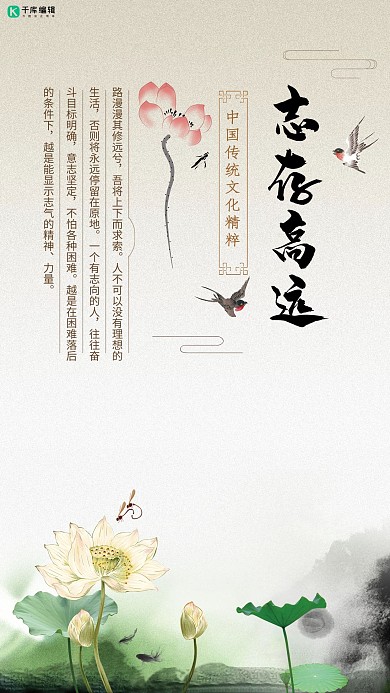 千库编辑
志存高远
中国传统文化精粹
路漫漫其修远兮，吾将上下而求索。人不可以没有理想的
生活，否则将永远停留在原地。一个有志向的人，往往奋
斗目标明确，意志坚定，不怕各种困难。越是在困难落后
的条件下，越是能显示志气的精神、力量。